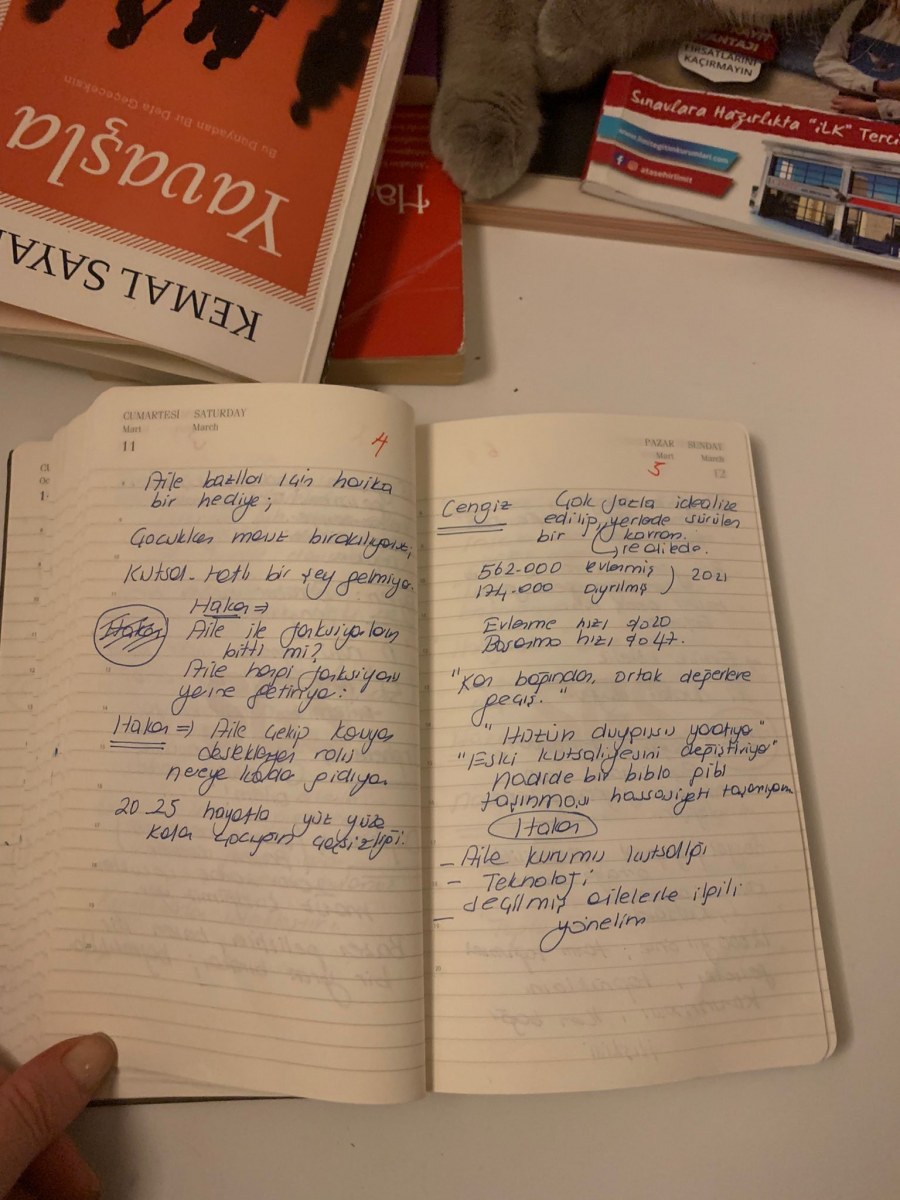 KEMAL SAYA
Yavaşla
Bu Dünyadan Bir Defa Geçeceksin
Ha
FIRSATLARINI
KAÇIRMAYIN
Sınavlara Hazırlıkta "İLK" Terci
atasehirlimit
CUMARTESİ SATURDAY
Mart March
11
4
Aile bazıları için harika
bir hediye;
Çocukları mevt bırakılıyor
Kutsal-tatlı bir şey gelmiyor.
Hakan ⇒
Hakan Aile ile fonksiyonları
bitti mi?
Aile hangi fonksiyonu
yerine getiriyor.
Hakan ⇒ Aile çekip koruyan
destekleyen rolü
nereye kadar gidiyor
20-25 hayatla yüz yüze
kalan çocuğun acısızlığı.
PAZAR SUNDAY
Mart March
5 12
Cengiz Çok fazla idealize
edilip, yerlerde sürülen
bir kavram.
realitede.
562.000 evlenmiş
174.000 ayrılmış ) 2021
Evlenme hızı %20
Boşanma hızı %47.
"Kan bağından, ortak değerlere
geçiş."
"Hüzün duygusu yaratıyor"
"Eski kutsaliyesini değiştiriyor"
nadide bir biblo gibi
taşınması hassasiyeti taşımıyor
Hakan
- Aile kurumu kutsallığı
- Teknoloji
- seçilmiş ailelerle ilgili
yönelim